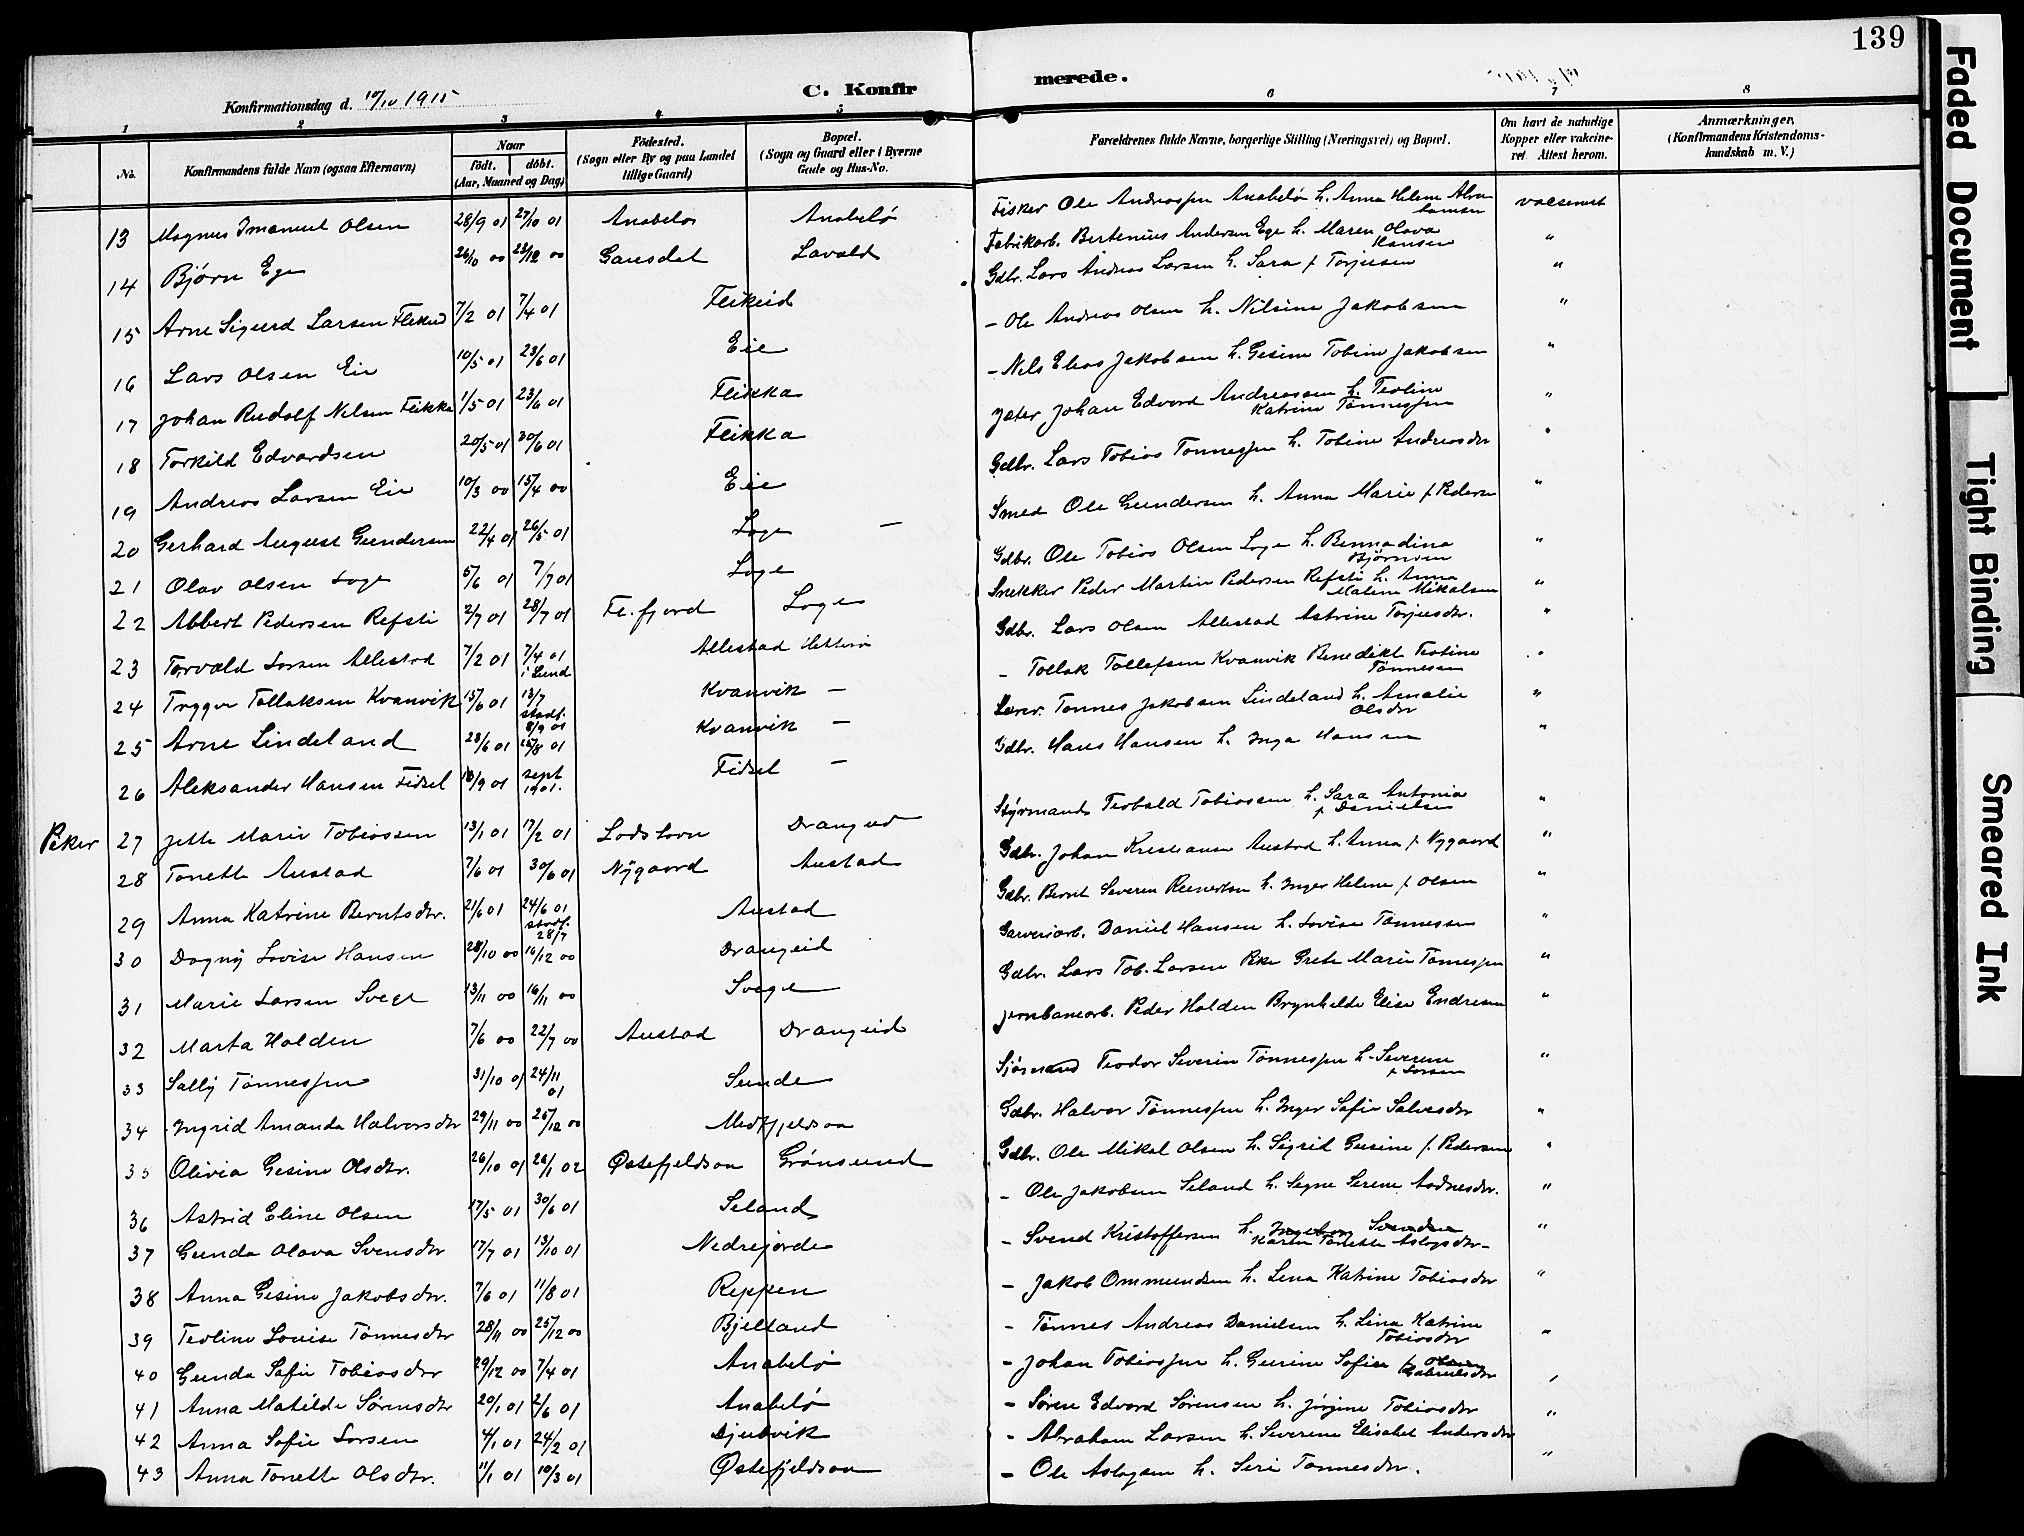 139
Konfirmationsdag d. 10/10 1915
C. Konfirmerede.
1 2 3 4 5 6 7 8
No. Konfirmandens fulde Navn (ogsaa Efternavn) Naar født. døbt. (Aar, Maaned og Dag) Fødested. (Sogn eller By og paa Landet tillige Gaard) Bopæl. (Sogn og Gaard eller i Byerne Gade og Hus-No. Forældrenes fulde Navne, borgerlige Stilling (Næringsvei) og Bopæl. Om havt de naturlige Kopper eller vakcineret. Attest herom. Anmærkninger. (Konfirmandens Kristendomskundskab m. V.)
13 Magnus Imanuel Olsen 28/9 01 27/10 01 Anabelø Anabelø Fisker Ole Andreassen Anabelø h. Anna Helene Abrahamsen
14 Bjørn Ege 26/10 00 26/12 00 Gausdal Lavold Fabrikarb. Bertenius Andersen Ege h. Maren Olava Hansen "
15 Arne Sigurd Larsen Flikeid 7/2 01 7/4 01 Flikeid Gdbr. Lars Andreas Larsen h. Sara f. Torjusen "
16 Lars Olsen Eie 10/5 01 23/6 01 Eie - Ole Andreas Olsen h. Nilsine Jakobsen "
17 Johan Rudolf Nilsen Flikka 1/5 01 23/6 01 Flikka - Nils Elias Jakobsen h. Gesine Tobine Jakobsen "
18 Torkild Edvardsen 20/5 01 30/6 01 Flikka Johan Edvard Andreassen h. Teoline Katrine Tønnessen "
19 Andreas Larsen Eie 10/3 00 15/4 00 Eie Gdbr. Lars Tobias Tønnessen h. Tobine Andreasdtr "
20 Gerhard August Gundersen 22/4 01 26/5 01 Loge - Smed Ole Gundersen h. Anna Marie f. Pedersen "
21 Olav Olsen Loge 5/6 01 7/7 01 Loge Gdbr. Ole Tobias Olsen Loge h. Bennadina Bjørnsen "
22 Abbert Pedersen Refsti 2/7 01 28/7 01 Fl.fjord Loge Snekker Peder Martin Pedersen Refsti h. Anna Malene Mikalsen "
23 Torvald Larsen Allestad 7/2 01 7/4 01 i Lund Allestad Gdbr. Lars Olsen Allestad Astrine Torjusdtr. "
24 Trygve Tollaksen Kvanvik 15/6 01 13/7 stadf. 8/9 01 Kvanvik - - Tollak Tollefsen Kvanvik Benedikt Teoline Tønnesen "
25 Arne Lindeland 23/6 01 25/8 01 Kvanvik - Lærer Tønnes Jakobsen Lindeland h. Amalie Olsdtr "
26 Aleksander Hansen Fidsel 18/9 01 sept 1901. Fidsel - Gdbr. Hans Hansen h. Inga Hansen "
Piker 27 Jette Marie Tobiassen 13/1 01 17/2 01 Lodshavn Drangeid Styrmand Teobald Tobiassen h. Sara Antonia f. Danielsen "
28 Tonette Austad 7/6 01 30/6 01 Nygaard Austad Gdbr. Johan Kristiansen Austad h. Anna f. Nygaard "
29 Anna Katrine Berntsdtr. 21/6 01 24/6 01 stadf. 28/7 Austad Gdbr. Bernt Severin Reinertsen h. Inger Helene f. Olsen "
30 Dagny Lovise Hansen 28/10 00 16/12 00 Drangeid Garveriarb. Daniel Hansen h. Lovise Tønnessen "
31 Marie Larsen Svege 13/11 00 16/11 00 Svege Gdbr. Lars Tob. Larsen Grete Marie Tønnessen "
32 Marta Holden 7/6 00 22/7 00 Austad Drangeid Jernbanearb. Peder Holden Brynhilde Elise Endresen "
33 Sally Tønnessen 31/10 01 24/11 01 Sunde Sjømand Teodor Severin Tønnessen h. Severine f. Larsen "
34 Ingrid Amanda Halvorsdtr 29/11 00 25/12 00 Midfjeldsaa Gdbr. Halvor Tønnessen h. Inger Sofie Salvesdtr "
35 Olivia Gesine Olsdtr. 26/10 01 26/1 02 Østefjeldsaa Grønsund Gdbr. Ole Mikal Olsen h. Sigrid Gurine f. Pedersen "
36 Astrid Eline Olsen 17/5 01 30/6 01 Seland - Ole Jakobsen Seland h. Signe Serene Aadnesdtr. "
37 Gunda Olava Svensdtr 17/7 01 13/10 01 Nedrejorde - Svend Kristoffersen h. Ingeborg Svendsen Karen Tonette Aslagsdtr- "
38 Anna Gesine Jakobsdtr. 7/6 01 11/8 01 Reppen - Jakob Ommundsen h. Lena Katrine Tobiasdtr "
39 Teoline Lovise Tønnesdtr 28/11 00 25/12 00 Bjelland - Tønnes Andreas Danielsen h. Lina Katrine Tobiasdtr "
40 Gunda Sofie Tobiasdtr 29/12 00 7/4 01 Anabelø - Johan Tobiassen h. Gurine Sofie f. Olsen Gabrielsdtr "
41 Anna Matilde Sørensdtr 20/1 01 2/6 01 Anabelø - Søren Edvard Sørensen h. Jørgine Tobiasdtr "
42 Anna Sofie Larsen 4/1 01 24/2 01 Djubvik - Abraham Larsen h. Severine Elisabet Andersdtr "
43 Anna Tonette Olsdtr. 11/1 01 10/3 01 Østefjeldsaa - Ole Aslagsen h. Seri Tønnesdtr.
Faded Document
Tight Binding
Smeared Ink